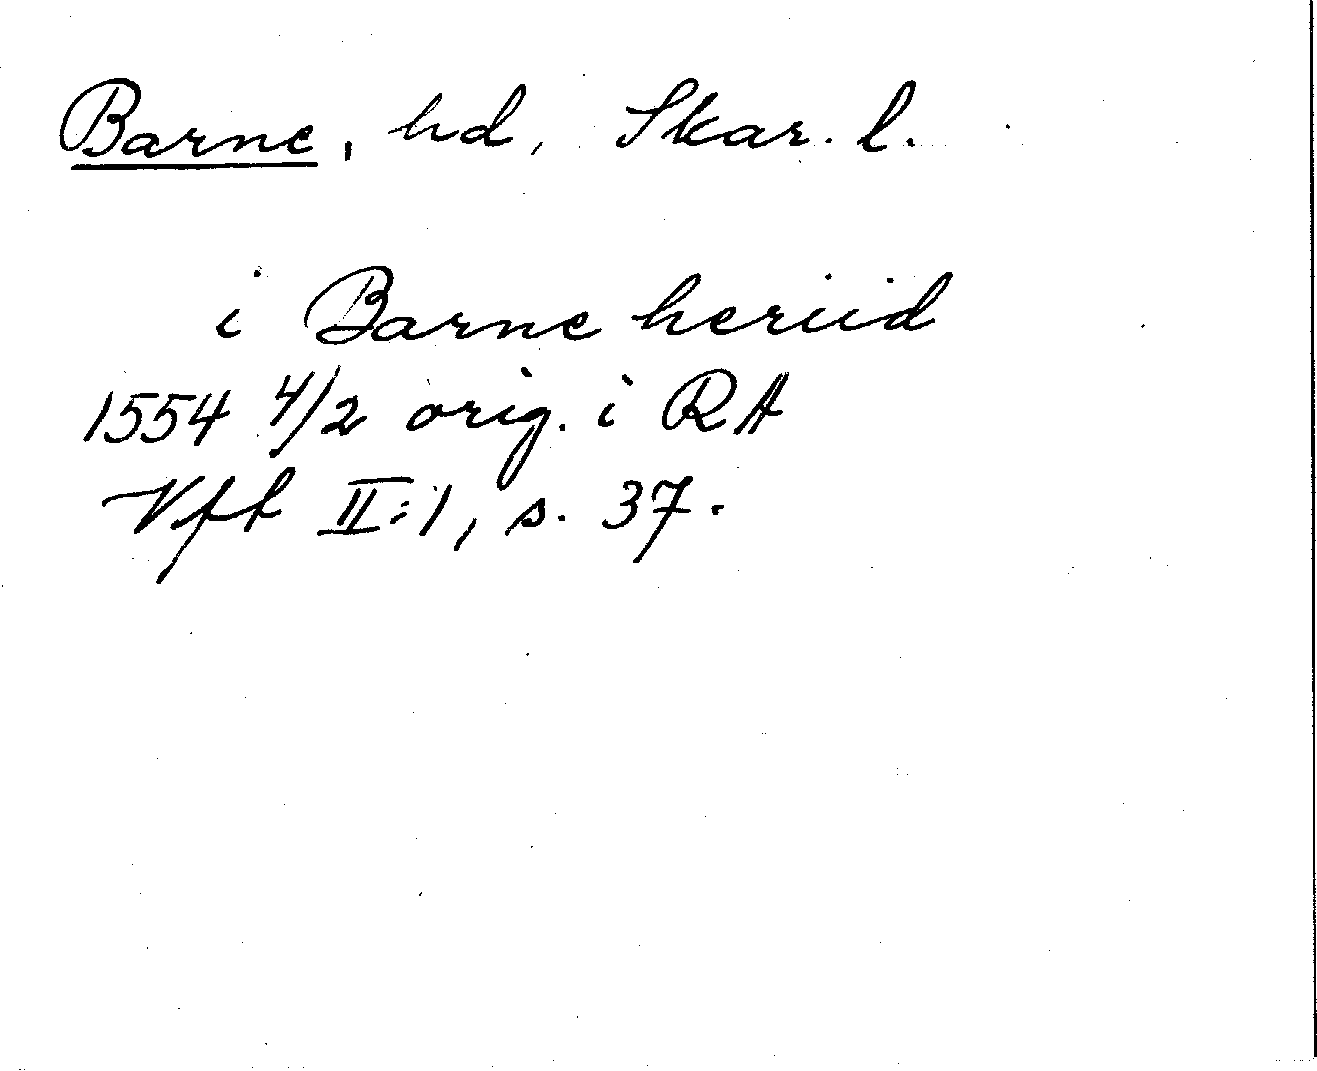 Barne, hd, Skar. l.
i Barne heriid
1554 4/2 orig. i RA
Vft II:1, s. 37.